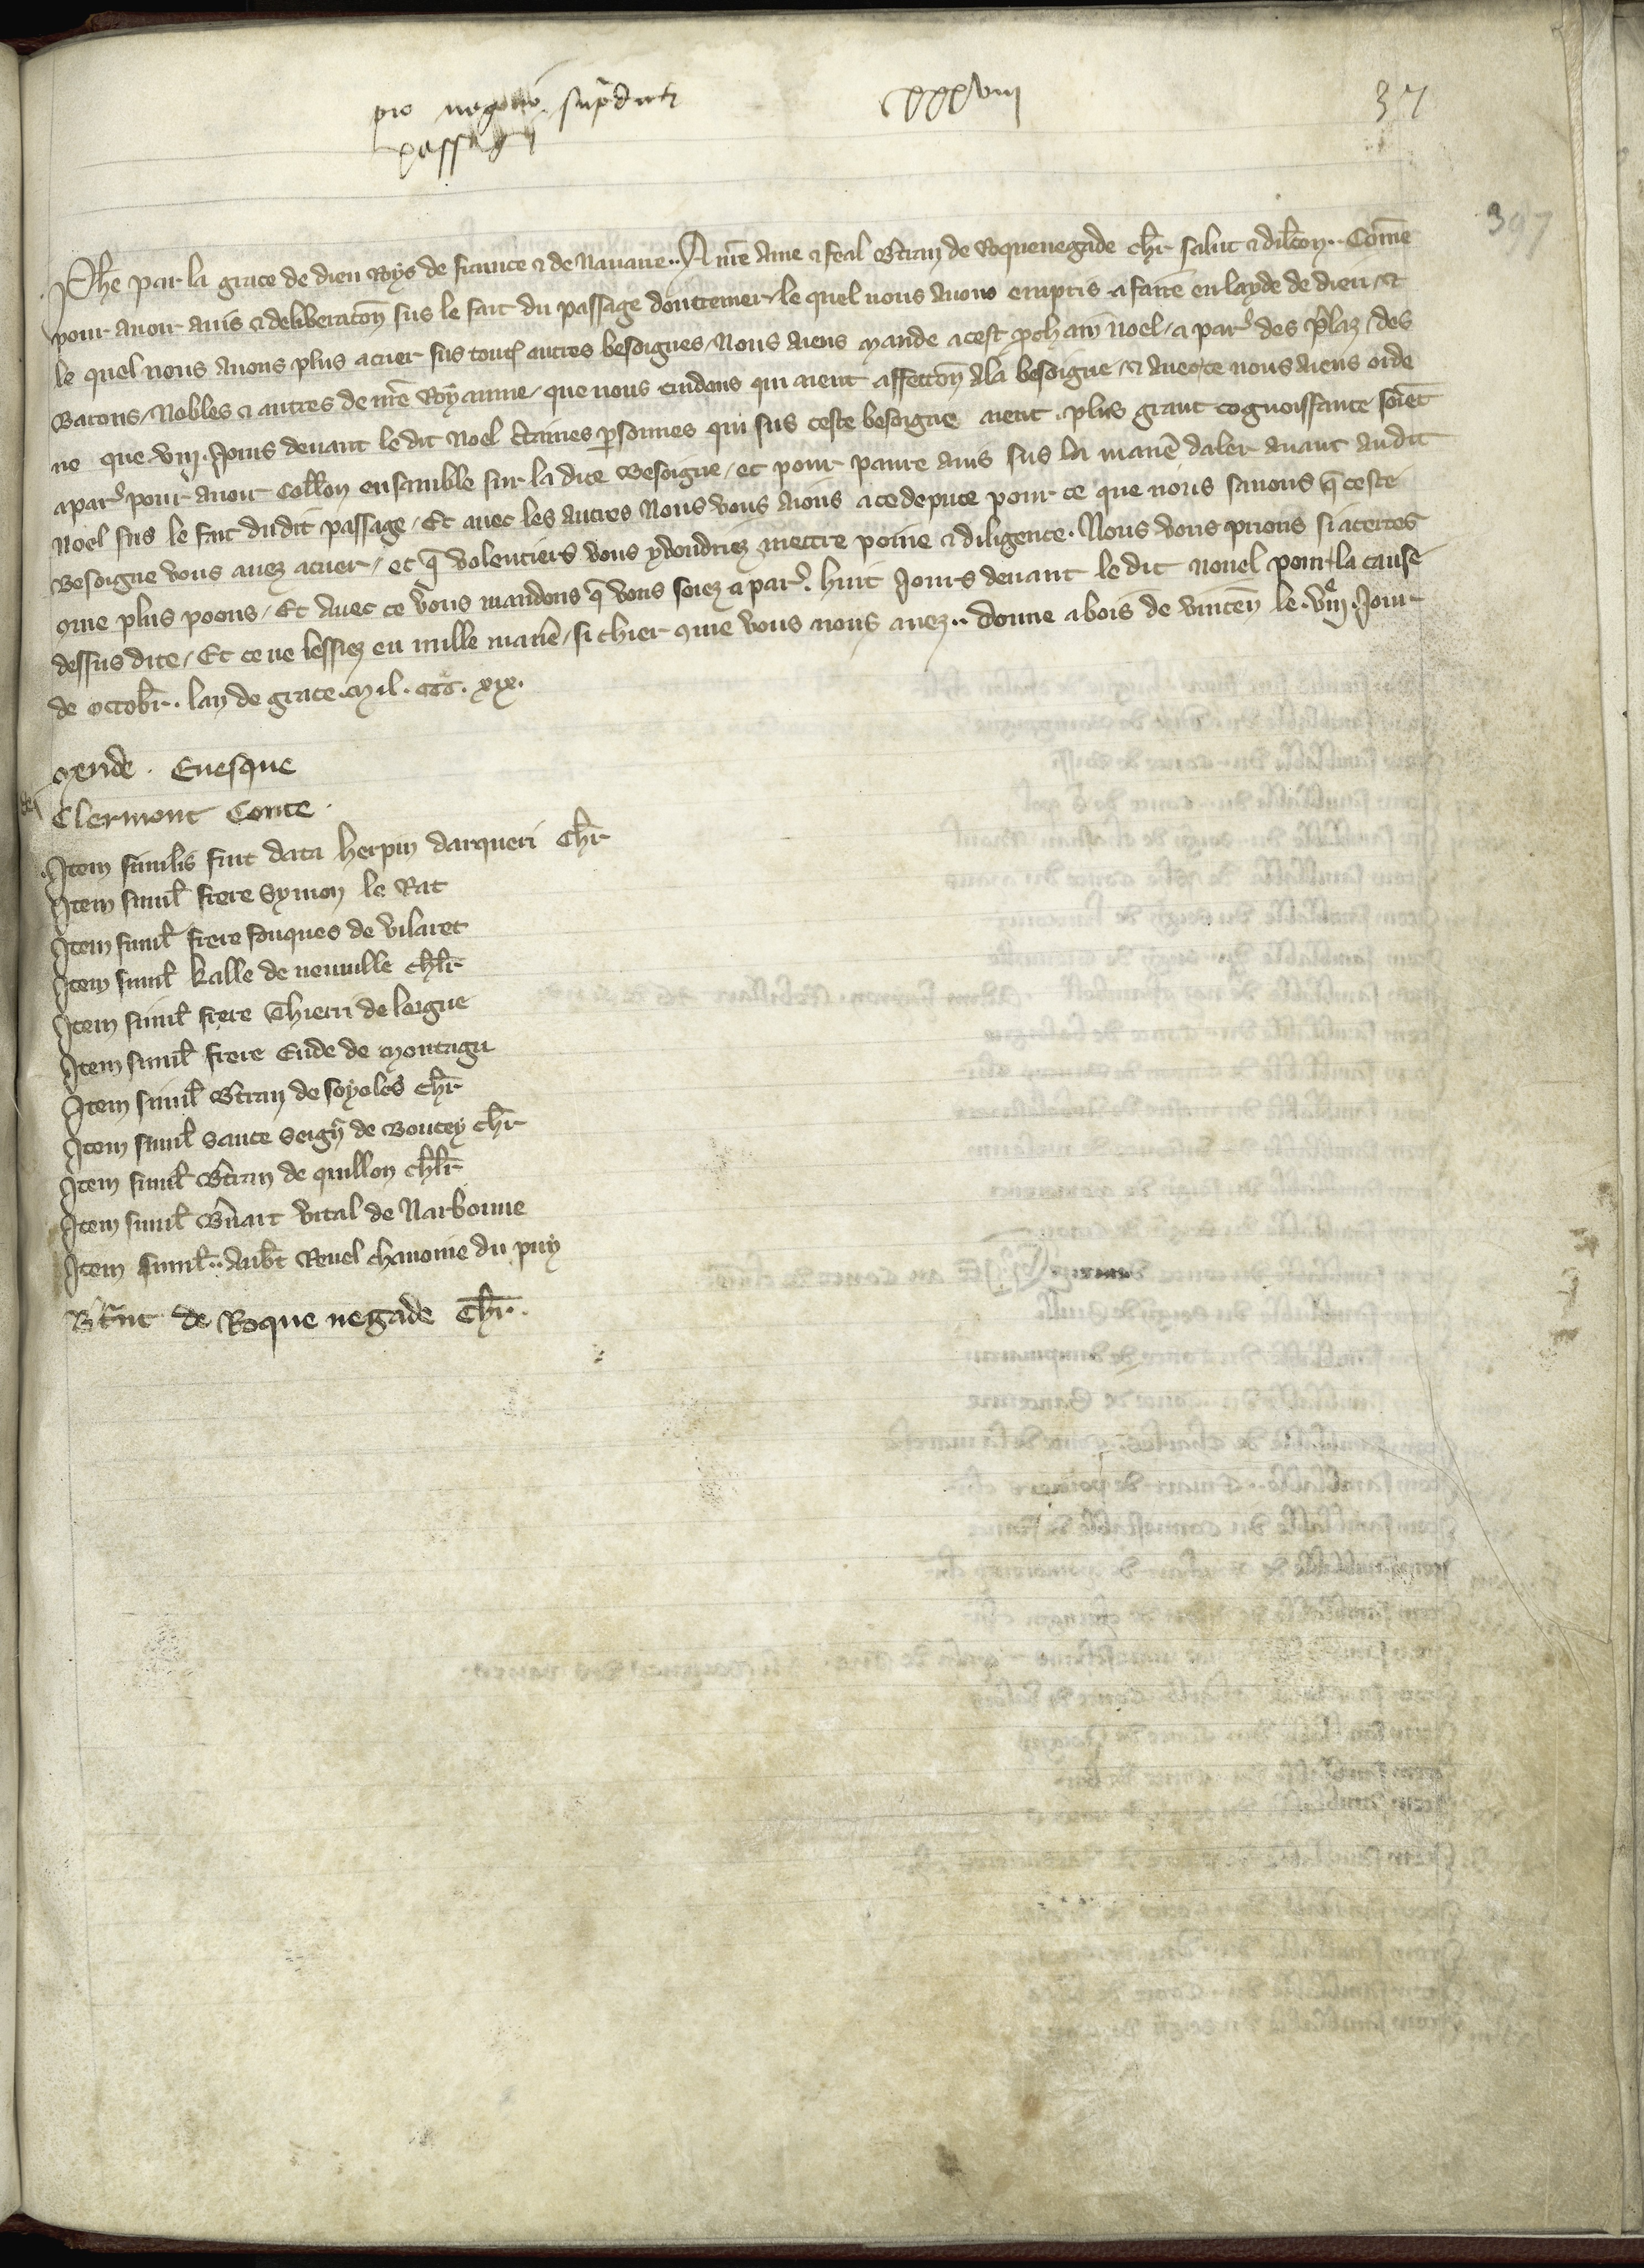 pro negotio supradicti
passagii
XXXVIII
37
397
Phẽ par la grace de dieu Roys de france & de Nauarre.. A nr̃e Ame & feal Bt̃ran de Roquenegade chr̃ salut & dilc̃on.. Com̃e
pour auoir auis & deliberac̃on sus le fait du passage doutremer, le quel nous auons empris a faire en layde de dieu, &
le quel nous auons plus a cuer sus toutes autres besoignes, Nous aiens mande a cest ꝓchain Noel, a par' des p̃laz, des
Barons, Nobles & autres de nr̃e Royaume, que nous cuidons qui aient affecc̃on a la besoigne, & auec ce nous aiens orde
ne que .viij. Jours deuant le dit Noel c̃taines ꝑsonnes qui sus ceste besoigne aient plus grant cognoissance soiẽt
a par' pour auoir Coll̃on ensamble sur la dite Besoigne, et pour panre auis sus la manẽ daler auant au dit
Noel sus le fait dudit passage, Et auec les autres Nous vous aions a ce depute pour ce que nous sauons q̃ ceste
Besoigne vous auez a cuer, et q̃ volentiers vous y vondriez mettre poine & diligence. Nous vous prions si a certes
9me plus poons, Et auec ce vous mandons q̃ vous soiez a par' huit Jours deuant le dit nouel pour la cause
dessus dite, Et ce ne lessiez en nulle manẽ, si chier 9me vous nous auez.. donne a bois de vincẽn le .viij.e Jour
de octobr̃. lan de grace .mil. ccc. xix.
Mende . Euesque
Clermont Conte .
Item similis fuit data herpin darqueri Chr̃
Item simil̃ frere Symon le Rat
Item simil̃ frere fouques de vilaret
Item simil̃ kalle de neuuille chl̃r
Item simil̃ frere Thierri de lorgne
Item simil̃ frere Eude de Montagu
Item simil̃ Bt̃ran de soyoles chr̃
Item simil̃ Sance Seigr̃ de Boutey chr̃
Item simil̃ Bt̃ran de quillon chl̃r
Item simil̃ Bñart vital de Narbonne
Item simil̃.. Aub̃t Reuel chanoine du puy
Bt̃rnt de Roque negade Chr̃.